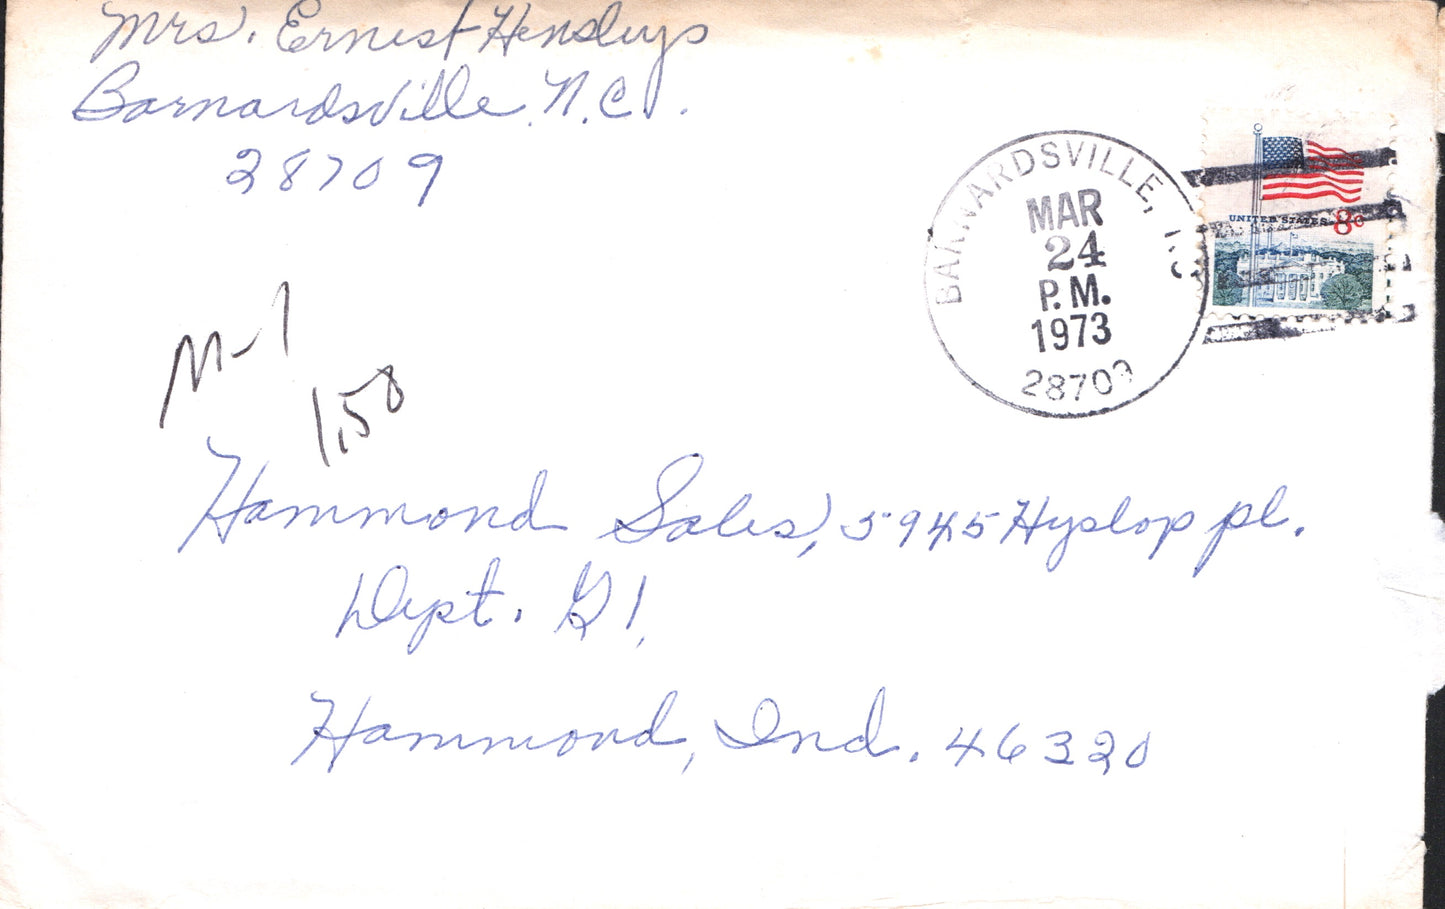 Mrs. Ernest Hensleys
Barnardsville, N.C.
28709
BARNARDSVILLE, N.C.
MAR
24
P.M.
1973
28709
UNITED STATES 8c
M-1
1.58
Hammond Sales, 5945 Hyslop pl.
Dept. G1,
Hammond, Ind. 46320